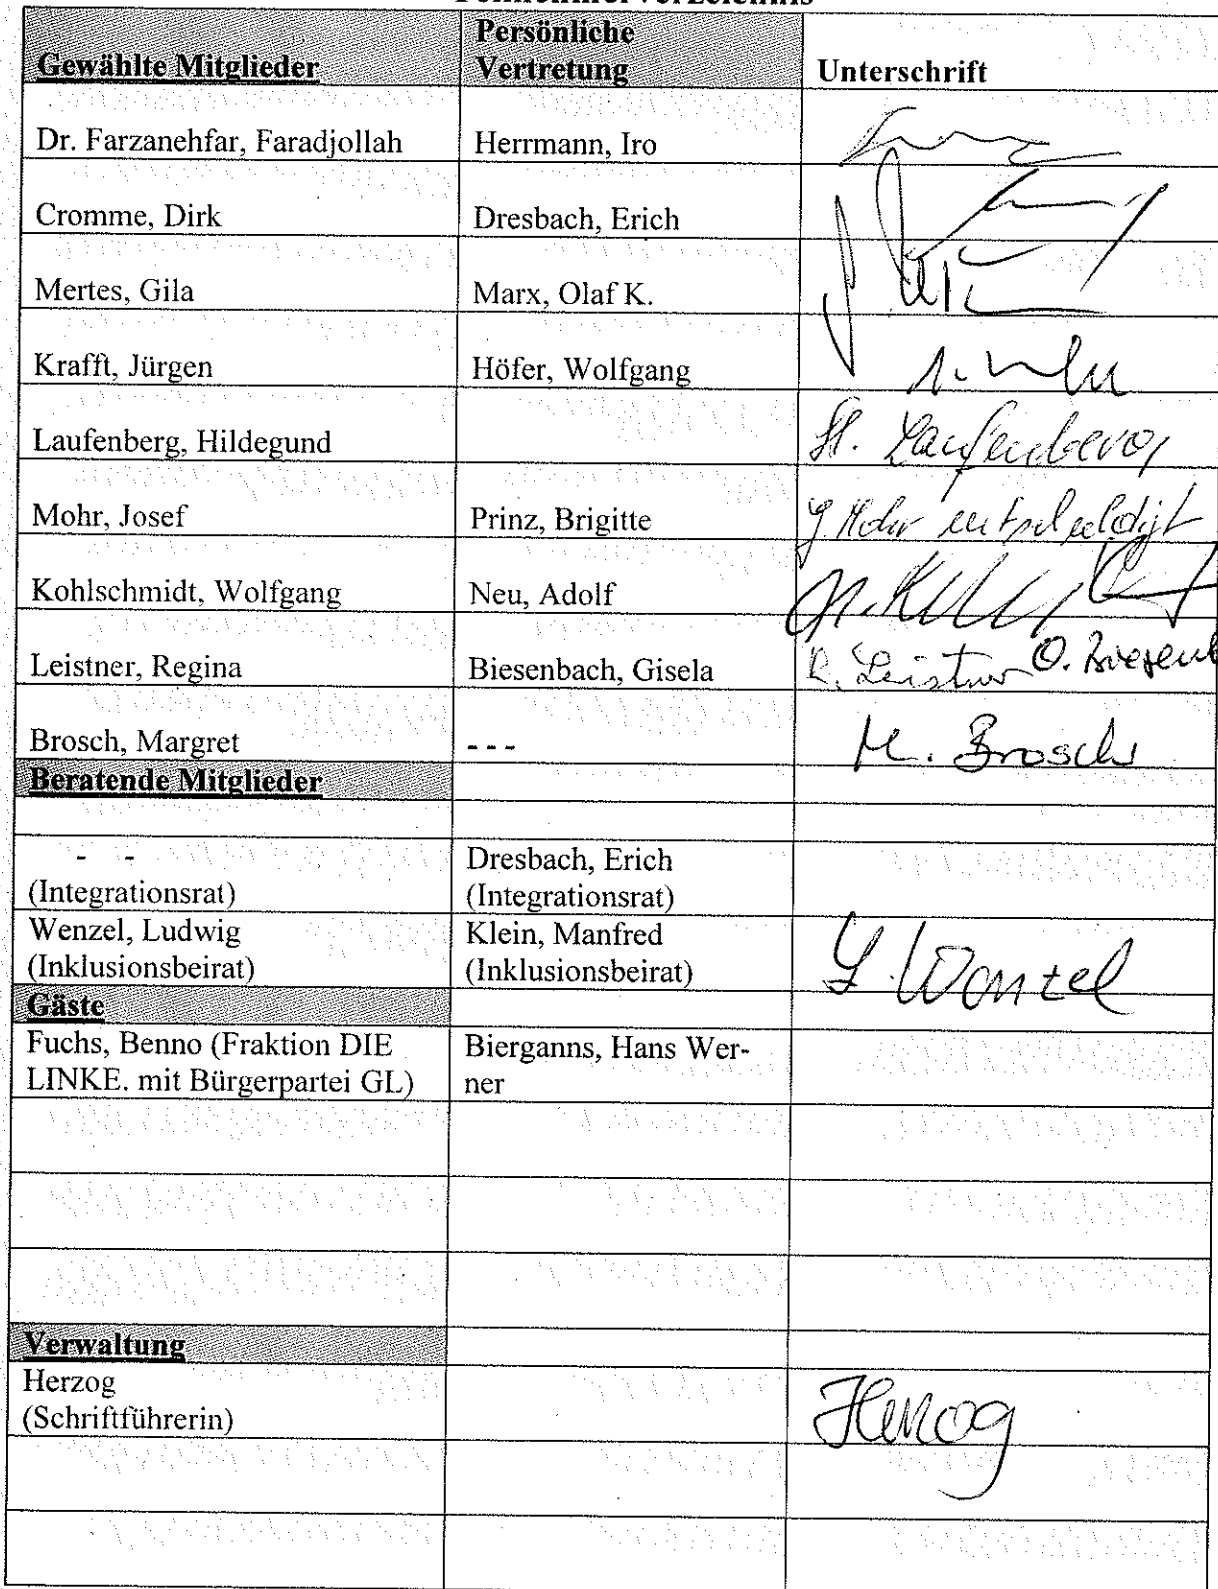 Teilnehmerverzeichnis
Gewählte Mitglieder
Persönliche
Vertretung
Unterschrift
Dr. Farzanehfar, Faradjollah
Herrmann, Iro
Cromme, Dirk
Dresbach, Erich
Mertes, Gila
Marx, Olaf K.
Krafft, Jürgen
Höfer, Wolfgang
Laufenberg, Hildegund
H. Laufenberg
Mohr, Josef
Prinz, Brigitte
J Mohr entschuldigt
Kohlschmidt, Wolfgang
Neu, Adolf
Leistner, Regina
Biesenbach, Gisela
R. Leistner
Brosch, Margret
- - -
M. Brosch
Beratende Mitglieder
- -
(Integrationsrat)
Dresbach, Erich
(Integrationsrat)
Wenzel, Ludwig
(Inklusionsbeirat)
Klein, Manfred
(Inklusionsbeirat)
L. Wenzel
Gäste
Fuchs, Benno (Fraktion DIE
LINKE. mit Bürgerpartei GL)
Bierganns, Hans Wer-
ner
Verwaltung
Herzog
(Schriftführerin)
Herzog